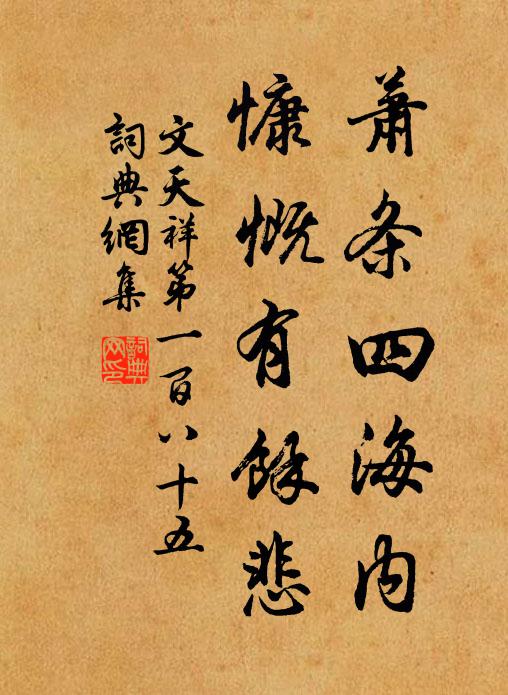 萧条四海内
慷慨有馀悲
文天祥第一百八十五
詞典網集
詞典
网印